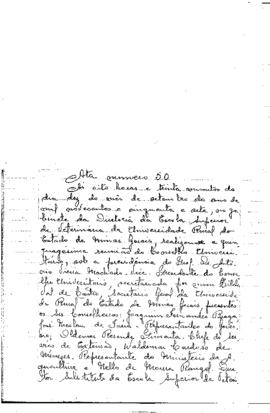 Ata número 50
Às oito horas e trinta minutos do
dia dez do mês de setembro do ano de
mil novecentos e cinquenta e sete, no ga-
binete da Diretoria da Escola Superior
de Veterinária da Universidade Rural do
Estado de Minas Gerais, realizou-se a quin
quagésima reunião do Conselho Universi-
tário, sob a presidência do Prof.
Vieira Machado, Vice-Presidente do Conse-
lho Universitário, secretariada por mim
de Castro, Secretário Geral da Universida-
de Rural do Estado de Minas Gerais, presentes
os srs. Conselheiros: Joaquim Fernandes Braga,
José de Faria - Representante do Gover-
no, Ildemar Resende, Chefe do Ser-
viço de Extensão, Waldemar Cardoso de
Menezes, Representante do Ministério da A-
gricultura e Mello de Moura Rangel, Dire
tor Substituto da Escola Superior de